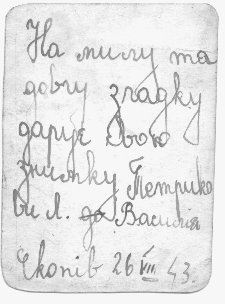 На милу та
добру згадку
дарує Свою
знимку Петрико
ви Л. до Василія
Єкопів 26 VIII 43.